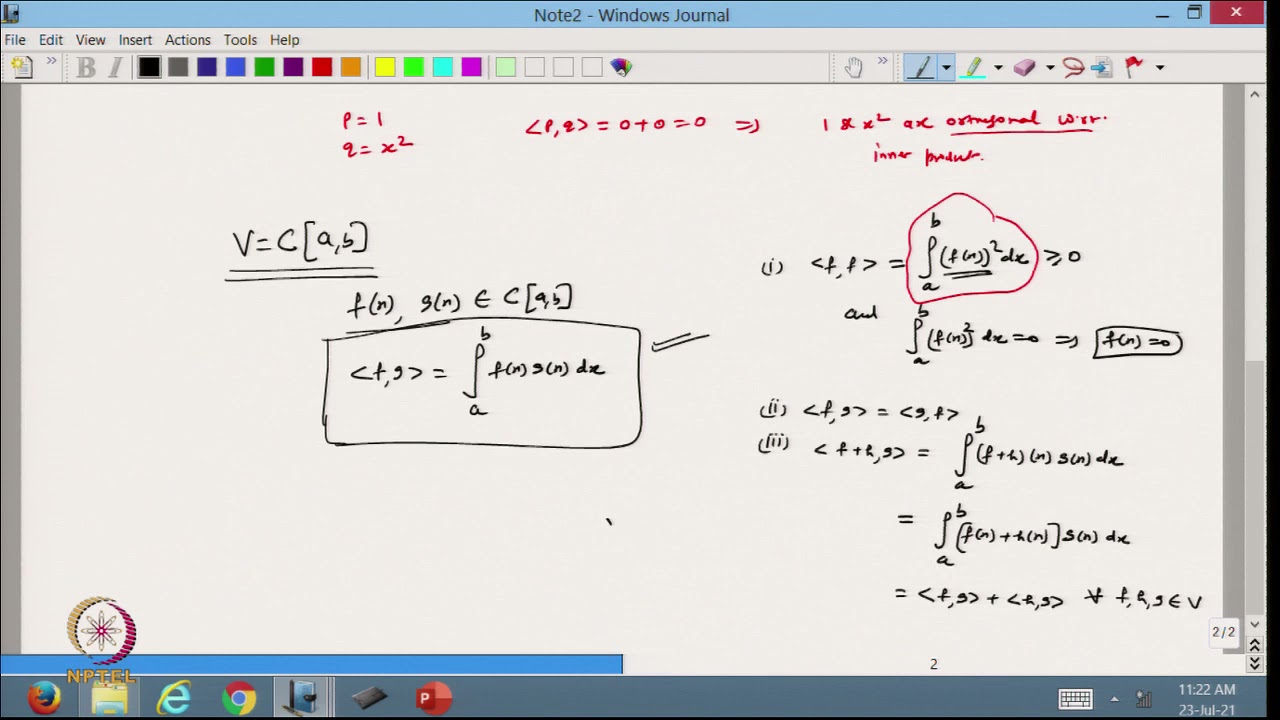 Note2 - Windows Journal
File Edit View Insert Actions Tools Help
p = 1
q = x²
<p,q> = 0+0 = 0 => 1 & x² are orthogonal w.r.t.
inner product.
V = C[a,b]
f(x), g(x) ∈ C[a,b]
<f,g> = ∫_a^b f(x) g(x) dx
(i) <f,f> = ∫_a^b (f(x))² dx ≥ 0
and ∫_a^b (f(x))² dx = 0 => f(x) = 0
(ii) <f,g> = <g,f>
(iii) <f+h,g> = ∫_a^b (f+h)(x) g(x) dx
= ∫_a^b [f(x)+h(x)] g(x) dx
= <f,g> + <h,g> ∀ f,h,g ∈ V
2/2
2
NPTEL
11:22 AM
23-Jul-21